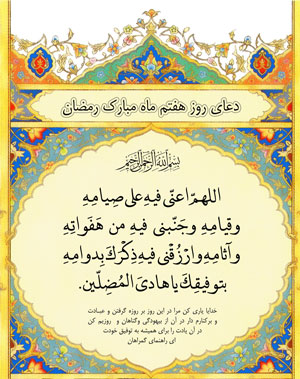 دعای روز هفتم ماه مبارک رمضان
بسم الله الرحمن الرحیم
اللهمّ اعنّی فیهِ علی صیامِهِ
وقیامِهِ وجَنّبنی فیهِ من هَفَواتِهِ
وآثامِهِ وارْزُقْنی فیهِ ذِكْرَكَ بِدوامِهِ
بتوفیقِكَ یا هادیَ المُضِلّین.
خدایا یاری کن مرا در این روز بر روزه گرفتن و عبادت
و برکنارم دار در آن از بیهودگی وگناهان و روزیم کن
در آن یادت را برای همیشه به توفیق خودت
ای راهنمای گمراهان